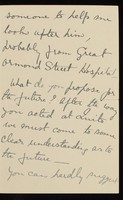 someone to help me
look after him,
probably from Great
Ormond Street Hospital.
What do you propose for
the future? After the way
you acted at
we must come to some
clear understanding as to
the future —
You can hardly suggest